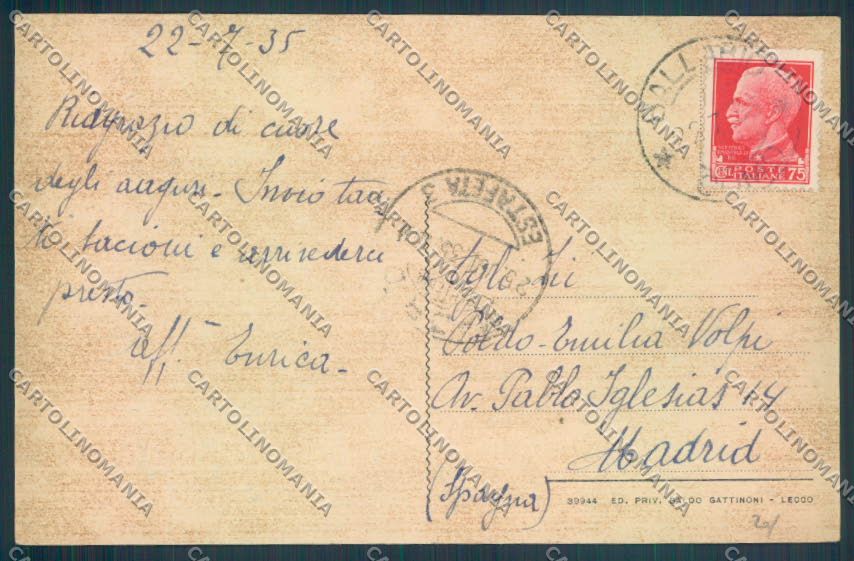 22-7-35
Ringrazio di cuore
degli auguri. Invio tan
ti bacioni e arrivederci
presto.
aff. Enrica.
Poldo-Emilia Volpi
Av. Pablo Iglesias 14
Madrid
(Spagna)
ESTAFETA 3
POSTE
ITALIANE
CENT. 75
39944 ED. PRIV. BALDO GATTINONI - LECCO
CARTOLINOMANIA